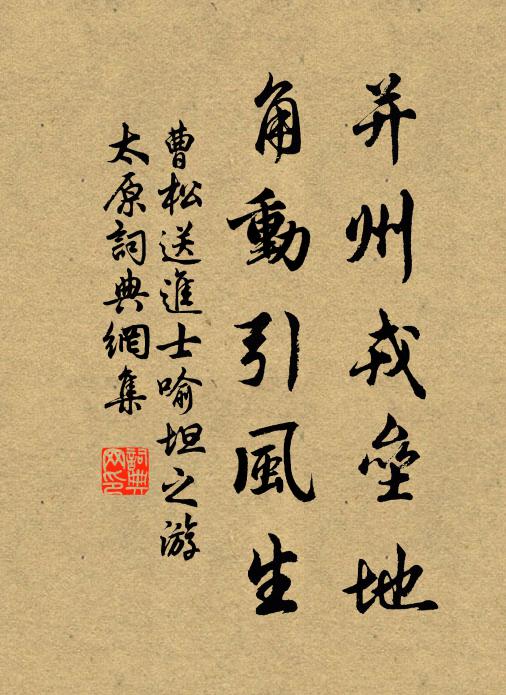 并州戎壘地
角動引風生
曹松送進士喻坦之游
太原詞典網集
詞典網印